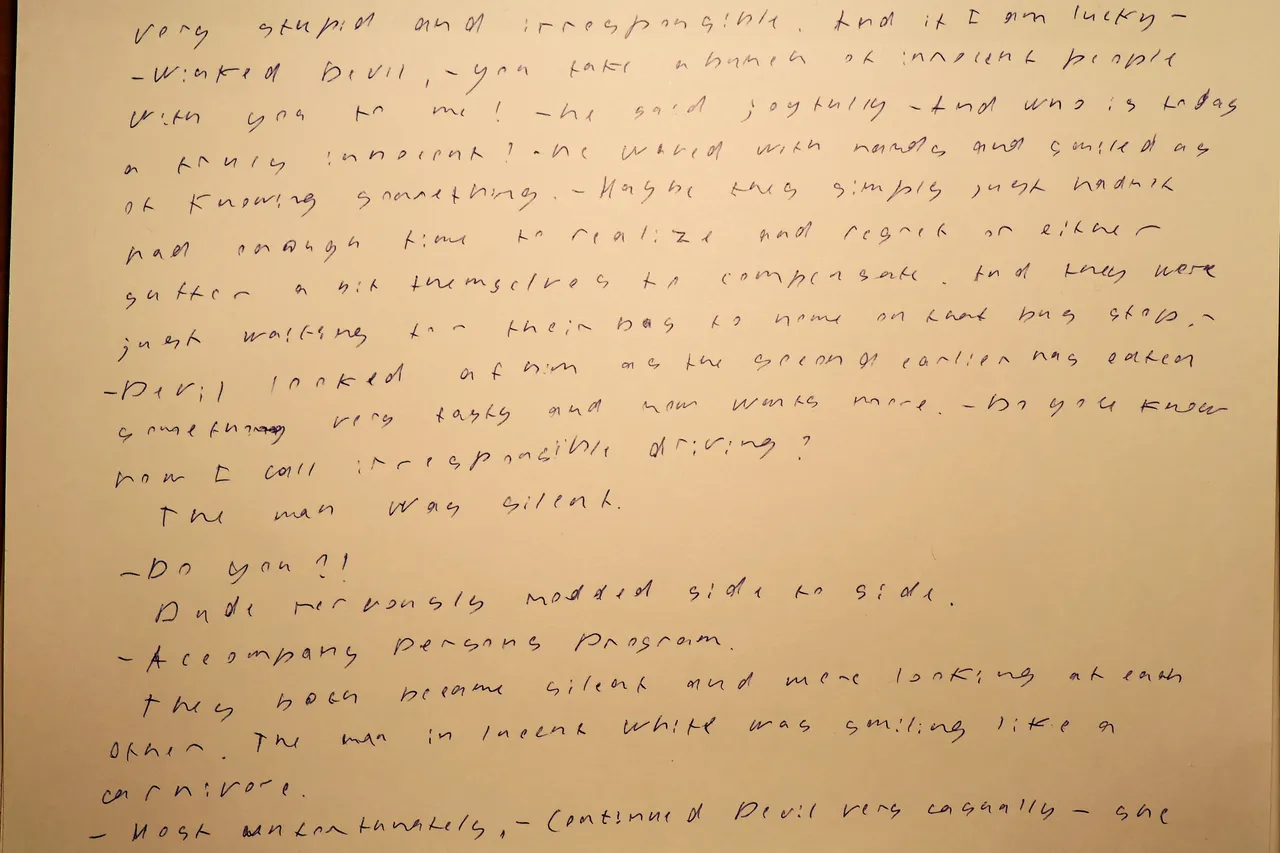 very stupid and irresponsible. And if I am lucky -
- Winked Devil, - you take a bunch of innocent people
with you to me! - he said joyfully - And who is today
a truly innocent? - he waved with hands and smiled as
of knowing something. - Maybe they simply just hadnot
had enough time to realize and regret or either
suffer a bit themselves to compensate. And they were
just waiting for their bus to home on that bus stop. -
- Devil looked at him as the second earlier has eaten
something very tasty and now wants more. - Do you know
how I call irresponsible driving?
The man was silent.
- Do you?!
Dude nervously nodded side to side.
- Accompany Persons Program.
They both became silent and were looking at each
other. The man in lucent white was smiling like a
carnivore.
- Most unfortunately, - Continued Devil very casually - she